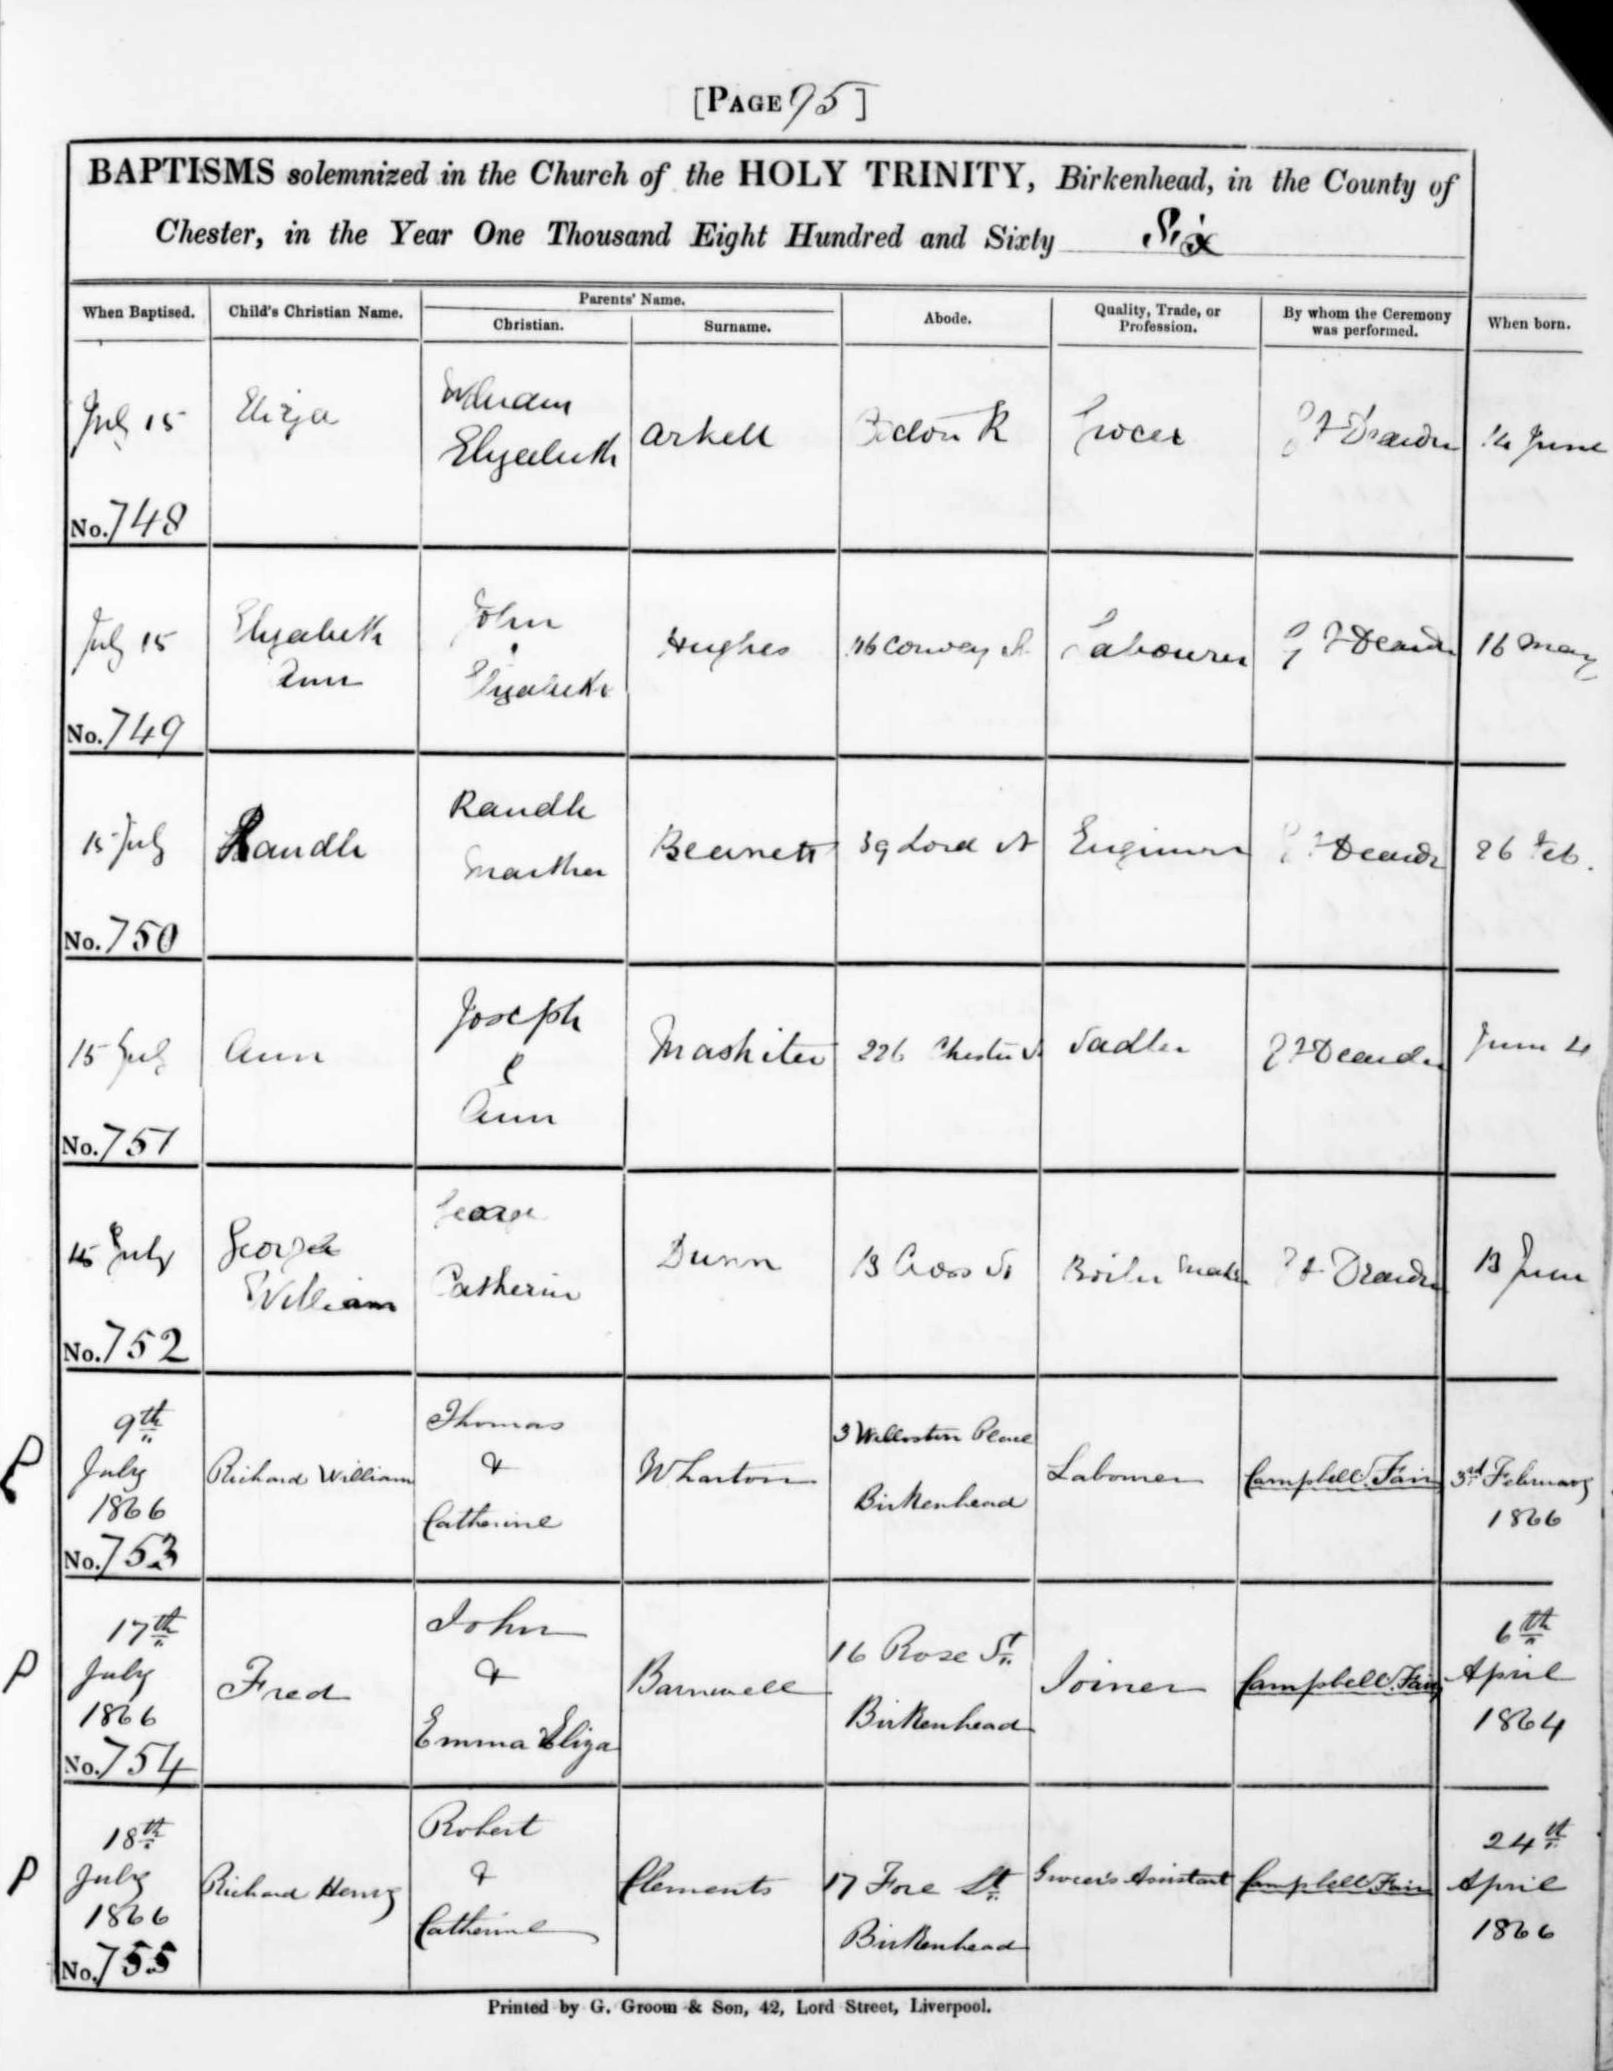 [PAGE 95]
BAPTISMS solemnized in the Church of the HOLY TRINITY, Birkenhead, in the County of
Chester, in the Year One Thousand Eight Hundred and Sixty Six
When Baptised.
Child's Christian Name.
Parents' Name.
Christian.
Surname.
Abode.
Quality, Trade, or
Profession.
By whom the Ceremony
was performed.
When born.
July 15
No. 748
Eliza
William
Elizabeth
Arkell
Grocer
Dearden
14 June
July 15
No. 749
Elizabeth
Ann
John
&
Elizabeth
Hughes
Conway St
Labourer
Dearden
16 May
15 July
No. 750
Randle
Randle
Martha
Bennett
39 Lord St
Engineer
Dearden
26 Feb.
15 July
No. 751
Ann
Joseph
&
Ann
Mashiter
226 Chester St
Sadler
Dearden
June 4
15 July
No. 752
George
William
George
Catherine
Dunn
13 Cross St
Boiler Maker
Dearden
13 June
P
9th
July
1866
No. 753
Richard William
Thomas
&
Catherine
Wharton
3 Willaston Place
Birkenhead
Labourer
Campbell Fair
3rd February
1866
P
17th
July
1866
No. 754
Fred
John
&
Emma Eliza
Barnwell
16 Rose St
Birkenhead
Joiner
Campbell Fair
6th
April
1864
P
18th
July
1866
No. 755
Richard Henry
Robert
&
Catherine
Clements
17 Fore St
Birkenhead
Grocer's Assistant
Campbell Fair
24th
April
1866
Printed by G. Groom & Son, 42, Lord Street, Liverpool.